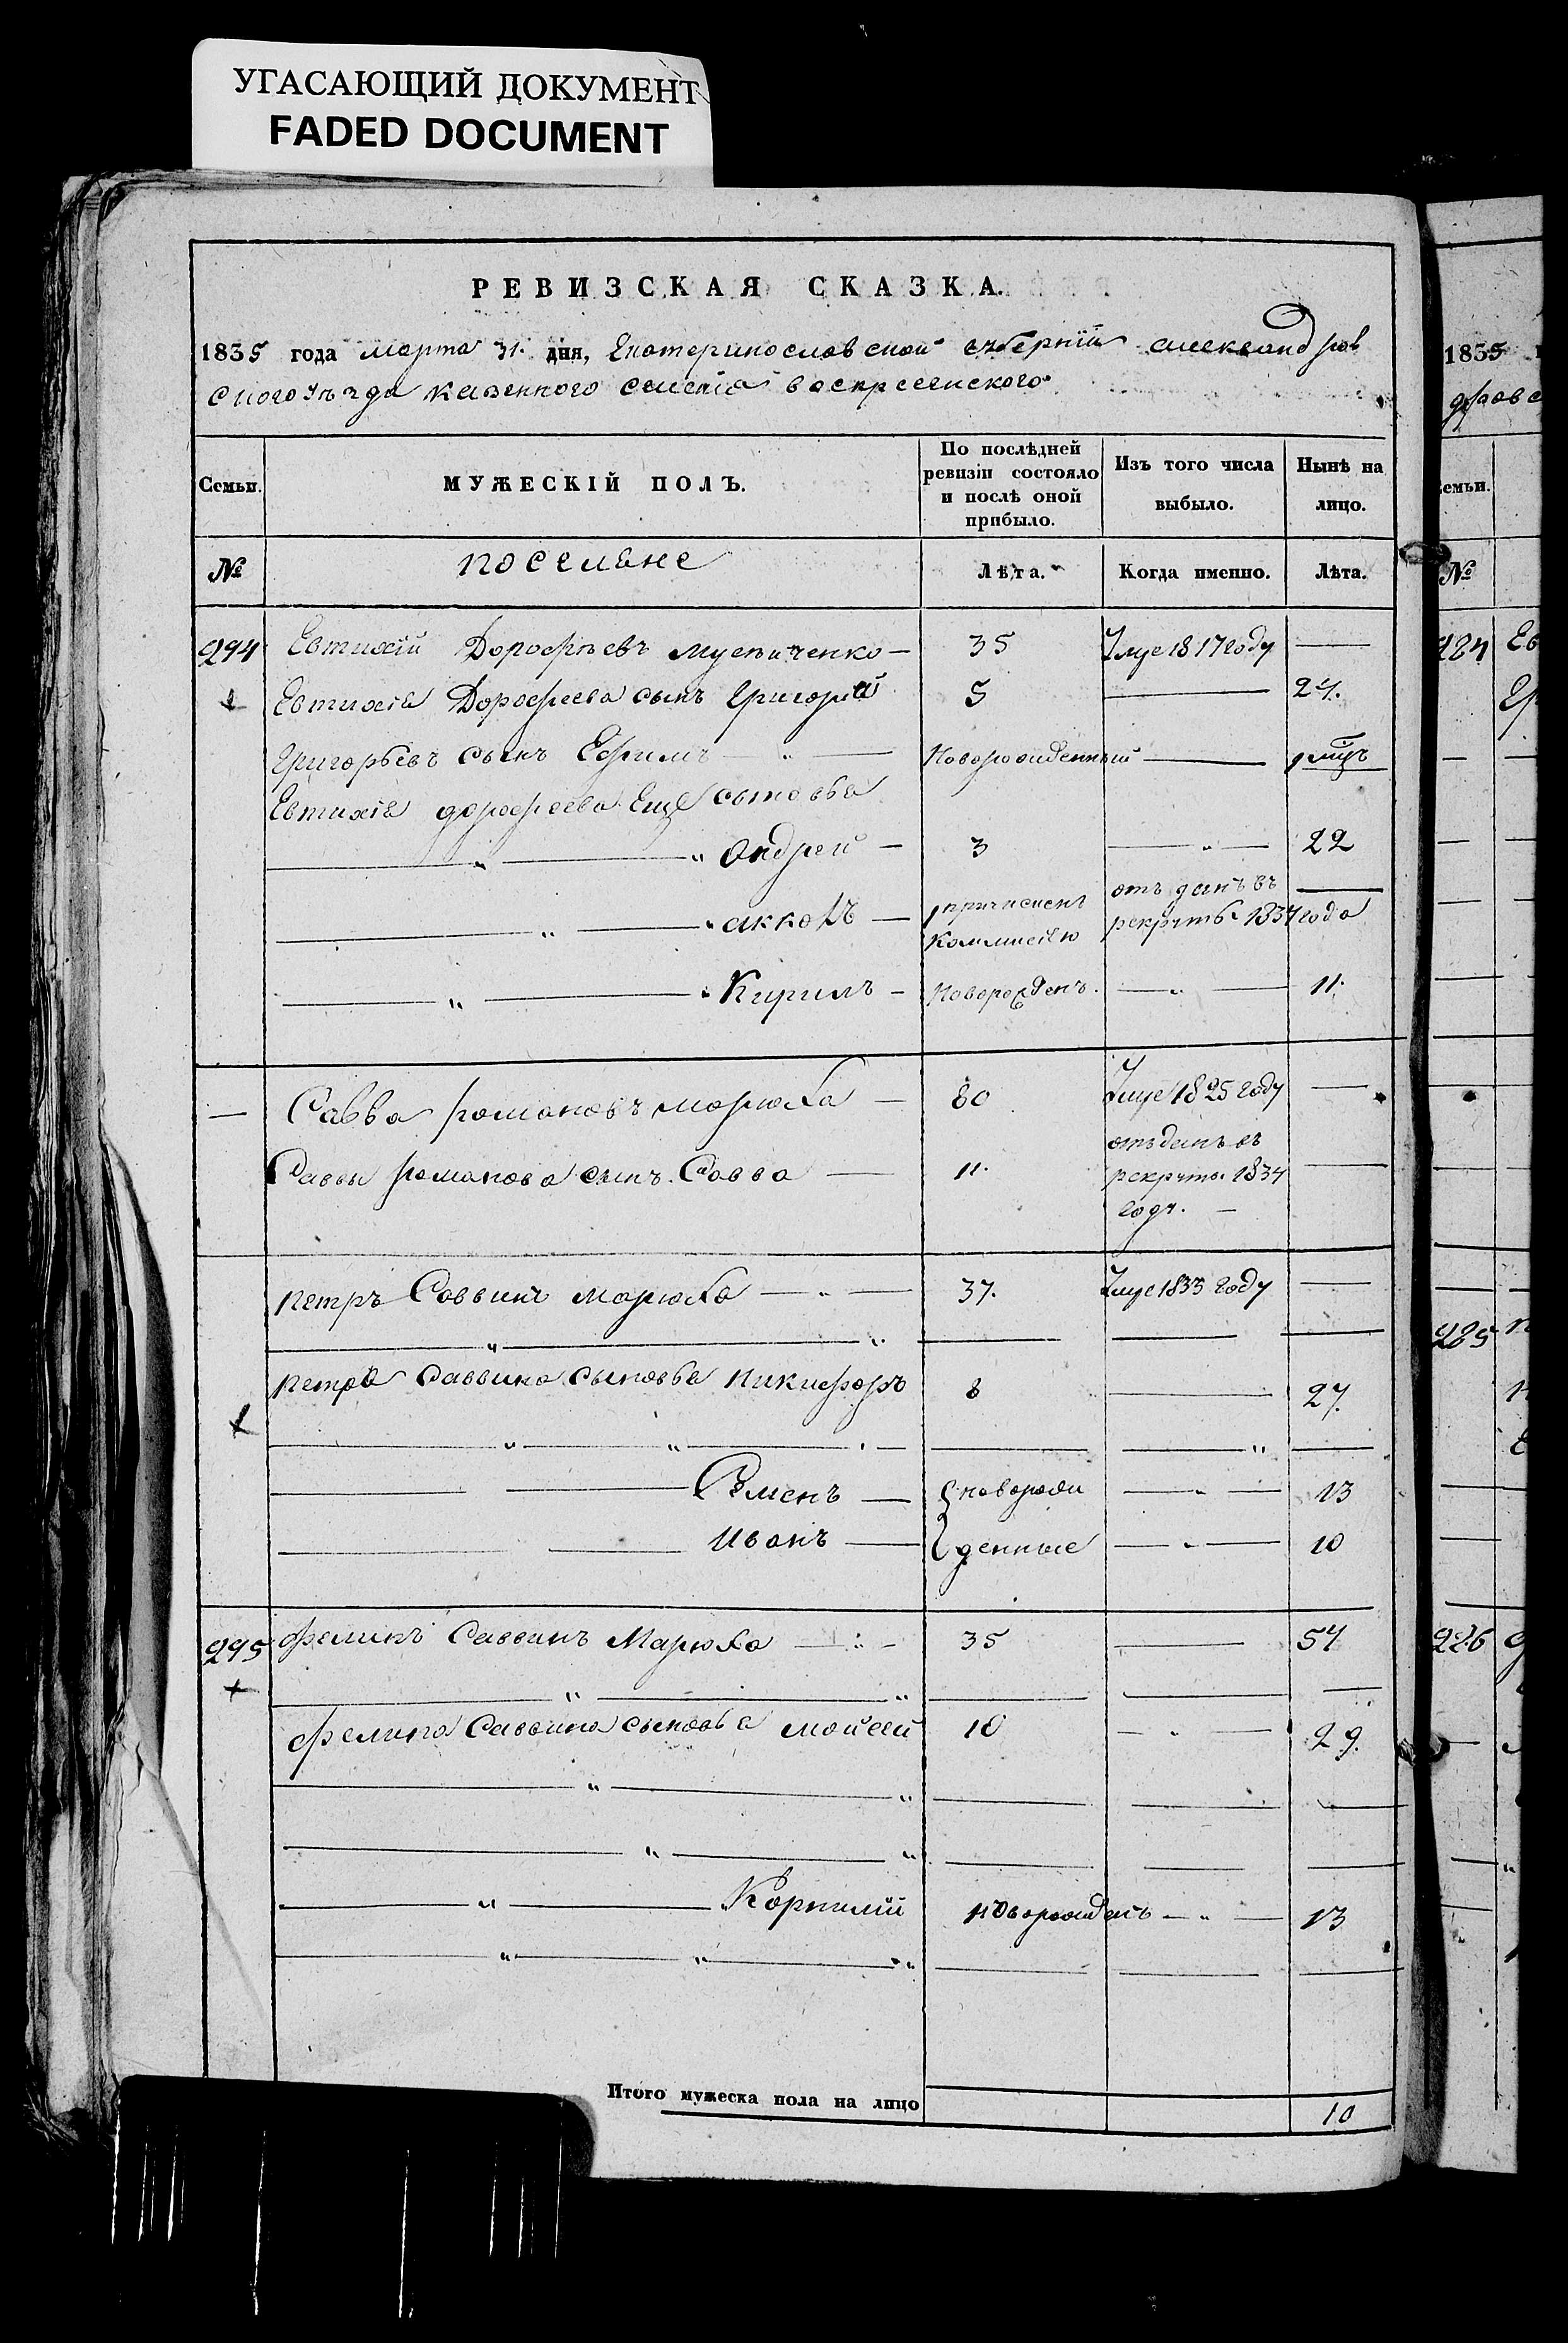 УГАСАЮЩИЙ ДОКУМЕНТ
FADED DOCUMENT
РЕВИЗСКАЯ СКАЗКА.
1835 года марта 31. дня, Екатеринославской губерніи александров
ского уѣзда казенного селенія воскресенского
Семьи. МУЖЕСКІЙ ПОЛЪ. По послѣдней ревизіи состояло и послѣ оной прибыло. Изъ того числа выбыло. Нынѣ на лицо.
№ поселяне Лѣта. Когда именно. Лѣта.
Евтихій Дорофѣевъ 35 Умре 1817 году
Евтихія Дорофеева сынъ Григорій 5 24.
Григорьевъ сынъ Ефимъ Новорожденный 1 мцъ
Евтихія дорофеева Еще сыновья
Андрей 3 22
причисленъ отъ данъ въ
коммисіею рекруты 1834 года
Кирилъ Новорожденъ. 11.
Савва романовъ марюха 60 Умре 1825 году
Саввы романова сынъ Савва 11. отъданъ въ
рекруты 1834
году.
петръ Саввинъ марюха 37. Умре 1833 году
петра Саввина сыновья никифоръ 8 27.
Семенъ новорож 13
Иванъ денные 10
Филипъ Саввинъ Марюха 35 54
филипа Саввина сыновья мойсей 10 29.
Корнилій новорожденъ 13
Итого мужеска пола на лицо 10
1835
№